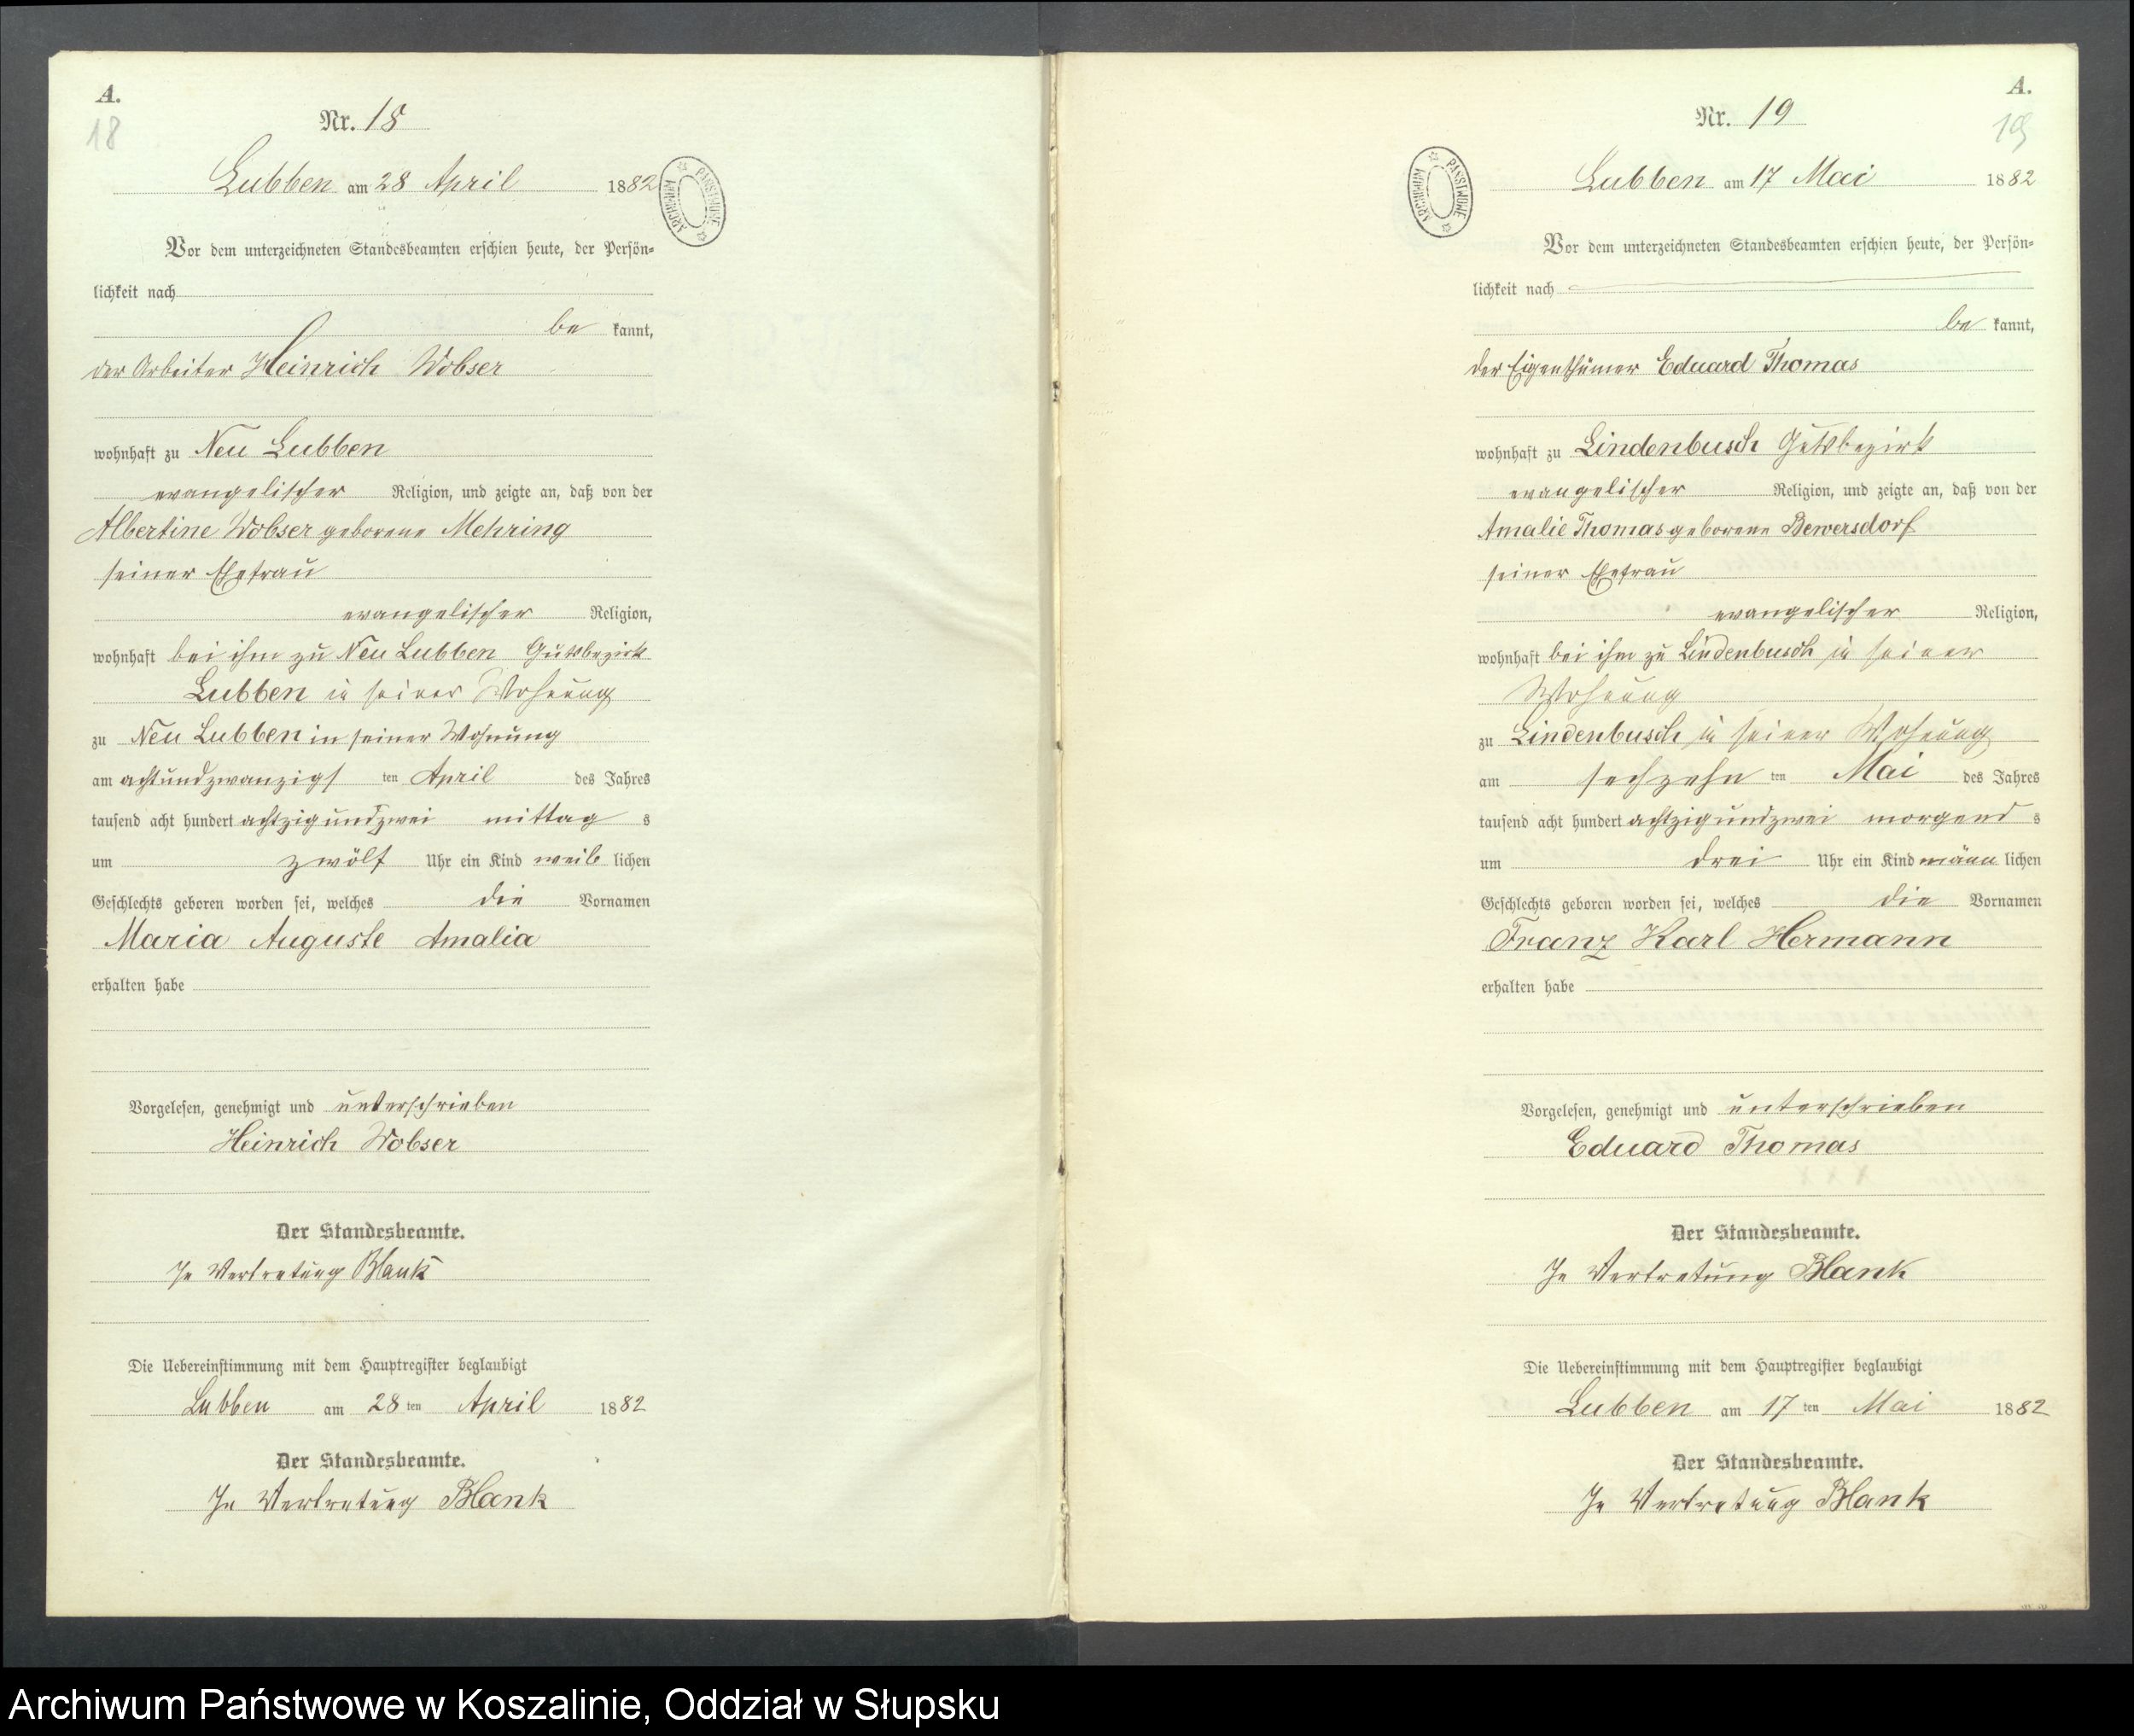 A.
18
Nr. 18
Lubben am 28 April 1882
ARCHIWUM PAŃSTWOWE
Vor dem unterzeichneten Standesbeamten erschien heute, der Persön-
lichkeit nach
be kannt,
der Arbeiter Heinrich Wobser
wohnhaft zu Neu Lubben
evangelischer Religion, und zeigte an, daß von der
Albertine Wobser geborene Mehring
seiner Ehefrau
evangelischer Religion,
wohnhaft bei ihm zu Neu Lubben Gutsbezirk
Lubben in seiner Wohnung
zu Neu Lubben in seiner Wohnung
am achtundzwanzigs ten April des Jahres
tausend acht hundert achtzigundzwei mittag s
um zwölf Uhr ein Kind weib lichen
Geschlechts geboren worden sei, welches die Vornamen
Maria Auguste Amalia
erhalten habe
Vorgelesen, genehmigt und unterschrieben
Heinrich Wobser
Der Standesbeamte.
In Vertretung Blank
Die Uebereinstimmung mit dem Hauptregister beglaubigt
Lubben am 28 ten April 1882
Der Standesbeamte.
In Vertretung Blank
A.
19
Nr. 19
Lubben am 17 Mai 1882
ARCHIWUM PAŃSTWOWE
Vor dem unterzeichneten Standesbeamten erschien heute, der Persön-
lichkeit nach
be kannt,
der Eigenthümer Eduard Thomas
wohnhaft zu Lindenbusch Gutsbezirk
evangelischer Religion, und zeigte an, daß von der
Amalie Thomas geborene Bewersdorf
seiner Ehefrau
evangelischer Religion,
wohnhaft bei ihm zu Lindenbusch in seiner
Wohnung
zu Lindenbusch in seiner Wohnung
am sechzehn ten Mai des Jahres
tausend acht hundert achtzigundzwei morgend s
um drei Uhr ein Kind männ lichen
Geschlechts geboren worden sei, welches die Vornamen
Franz Karl Hermann
erhalten habe
Vorgelesen, genehmigt und unterschrieben
Eduard Thomas
Der Standesbeamte.
In Vertretung Blank
Die Uebereinstimmung mit dem Hauptregister beglaubigt
Lubben am 17 ten Mai 1882
Der Standesbeamte.
In Vertretung Blank
Archiwum Państwowe w Koszalinie, Oddział w Słupsku